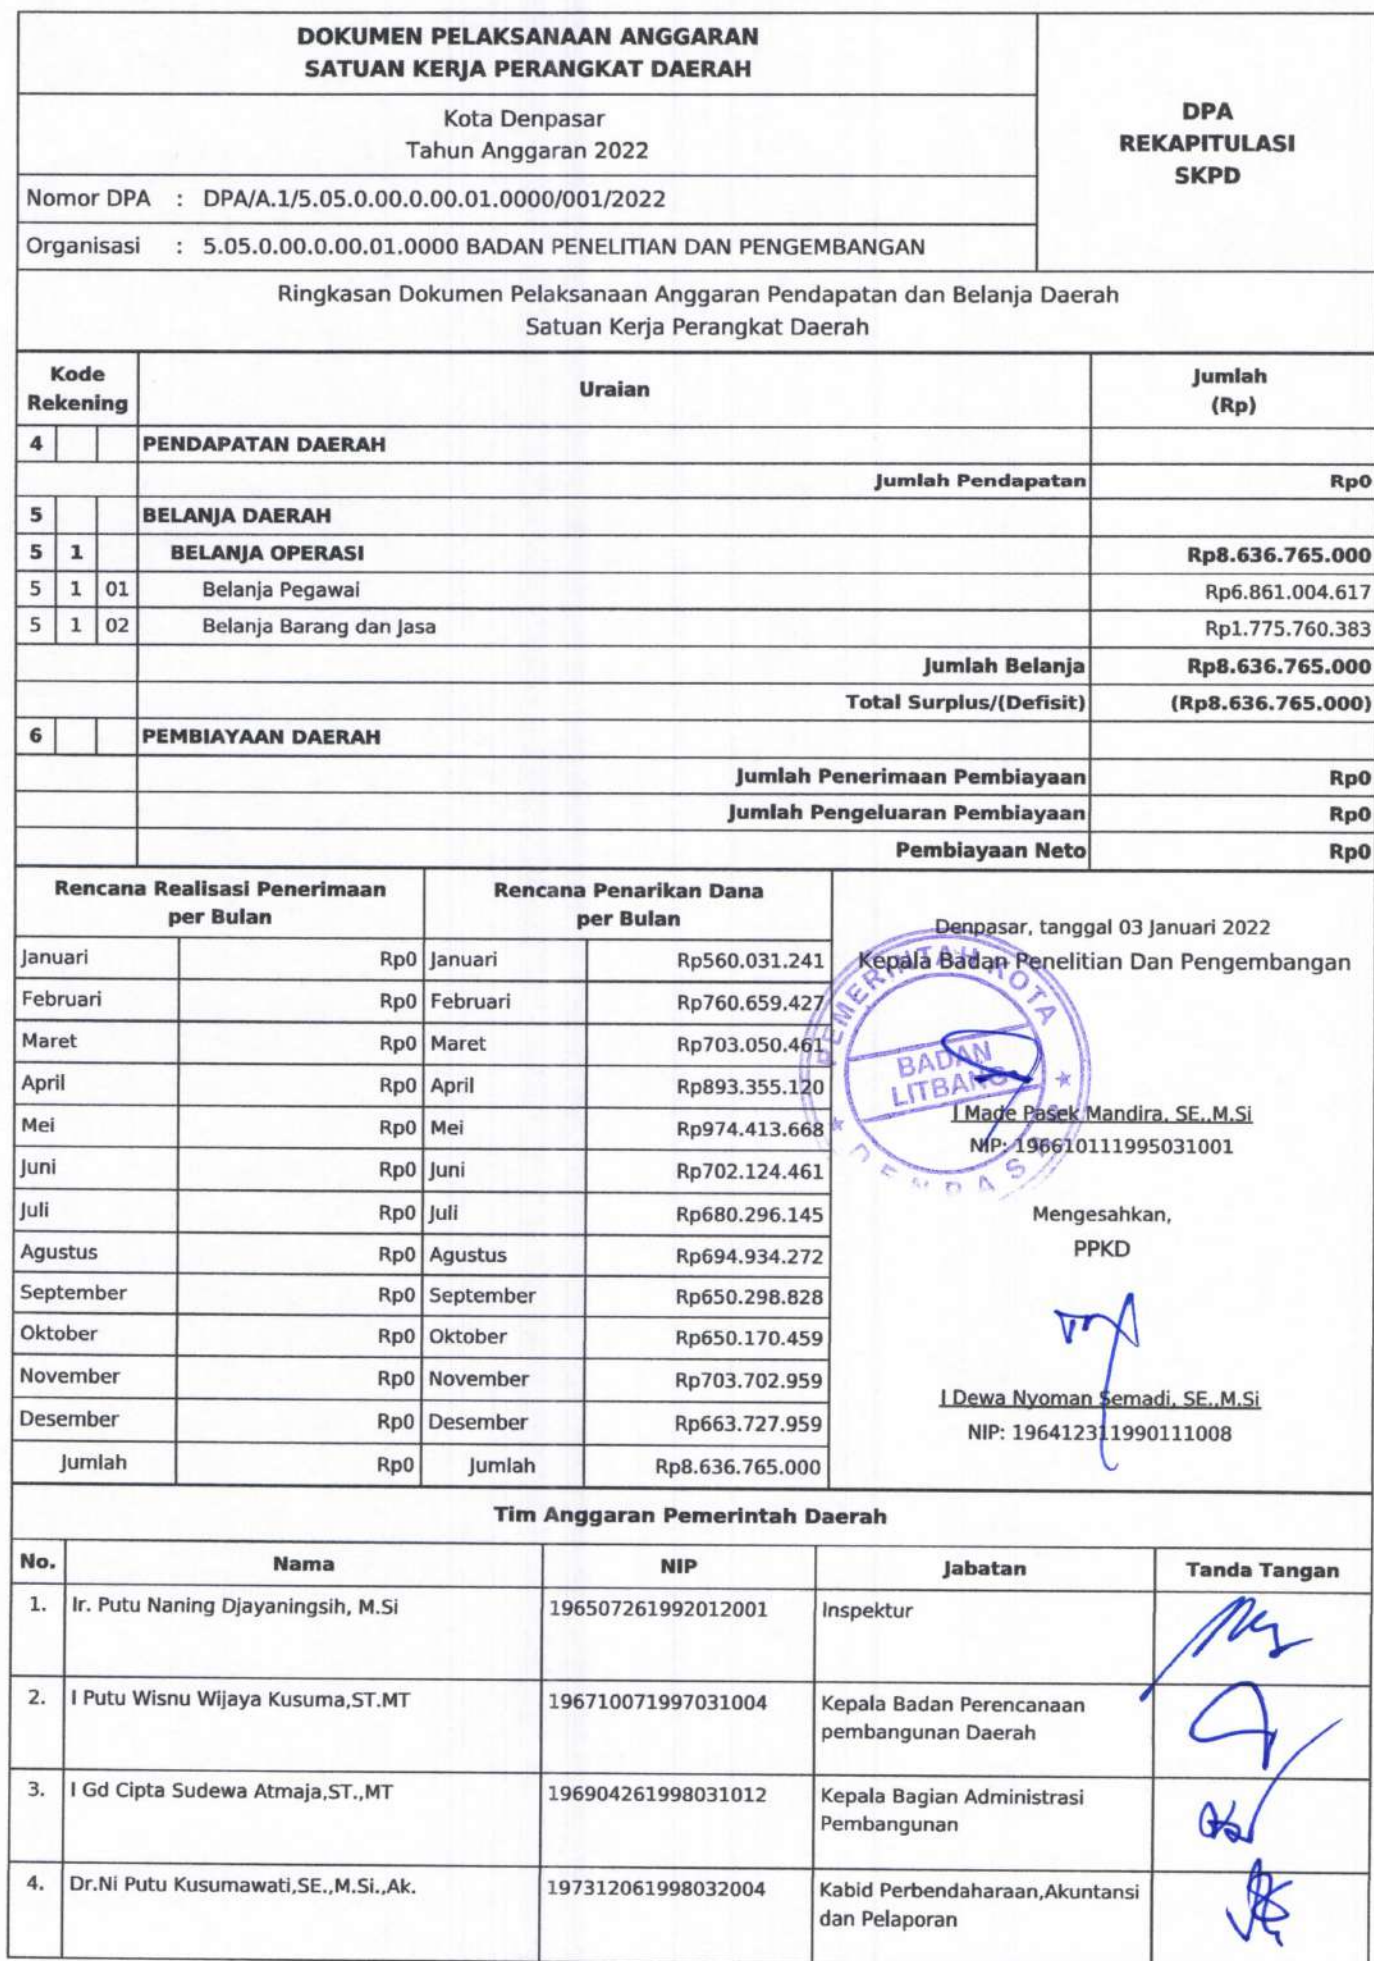 DOKUMEN PELAKSANAAN ANGGARAN
SATUAN KERJA PERANGKAT DAERAH
DPA
REKAPITULASI
SKPD
Kota Denpasar
Tahun Anggaran 2022
Nomor DPA : DPA/A.1/5.05.0.00.0.00.01.0000/001/2022
Organisasi : 5.05.0.00.0.00.01.0000 BADAN PENELITIAN DAN PENGEMBANGAN
Ringkasan Dokumen Pelaksanaan Anggaran Pendapatan dan Belanja Daerah
Satuan Kerja Perangkat Daerah
Kode Rekening Uraian Jumlah (Rp)
4 PENDAPATAN DAERAH
Jumlah Pendapatan Rp0
5 BELANJA DAERAH
5 1 BELANJA OPERASI Rp8.636.765.000
5 1 01 Belanja Pegawai Rp6.861.004.617
5 1 02 Belanja Barang dan Jasa Rp1.775.760.383
Jumlah Belanja Rp8.636.765.000
Total Surplus/(Defisit) (Rp8.636.765.000)
6 PEMBIAYAAN DAERAH
Jumlah Penerimaan Pembiayaan Rp0
Jumlah Pengeluaran Pembiayaan Rp0
Pembiayaan Neto Rp0
Rencana Realisasi Penerimaan per Bulan Rencana Penarikan Dana per Bulan
Januari Rp0 Januari Rp560.031.241
Februari Rp0 Februari Rp760.659.427
Maret Rp0 Maret Rp703.050.461
April Rp0 April Rp893.355.120
Mei Rp0 Mei Rp974.413.668
Juni Rp0 Juni Rp702.124.461
Juli Rp0 Juli Rp680.296.145
Agustus Rp0 Agustus Rp694.934.272
September Rp0 September Rp650.298.828
Oktober Rp0 Oktober Rp650.170.459
November Rp0 November Rp703.702.959
Desember Rp0 Desember Rp663.727.959
Jumlah Rp0 Jumlah Rp8.636.765.000
Denpasar, tanggal 03 Januari 2022
Kepala Badan Penelitian Dan Pengembangan
PEMERINTAH KOTA
BADAN
LITBANG
DENPASAR
I Made Pasek Mandira, SE.,M.Si
NIP: 196610111995031001
Mengesahkan,
PPKD
I Dewa Nyoman Semadi, SE.,M.Si
NIP: 196412311990111008
Tim Anggaran Pemerintah Daerah
No. Nama NIP Jabatan Tanda Tangan
1. Ir. Putu Naning Djayaningsih, M.Si 196507261992012001 Inspektur
2. I Putu Wisnu Wijaya Kusuma,ST.MT 196710071997031004 Kepala Badan Perencanaan
pembangunan Daerah
3. I Gd Cipta Sudewa Atmaja,ST.,MT 196904261998031012 Kepala Bagian Administrasi
Pembangunan
4. Dr.Ni Putu Kusumawati,SE.,M.Si.,Ak. 197312061998032004 Kabid Perbendaharaan,Akuntansi
dan Pelaporan